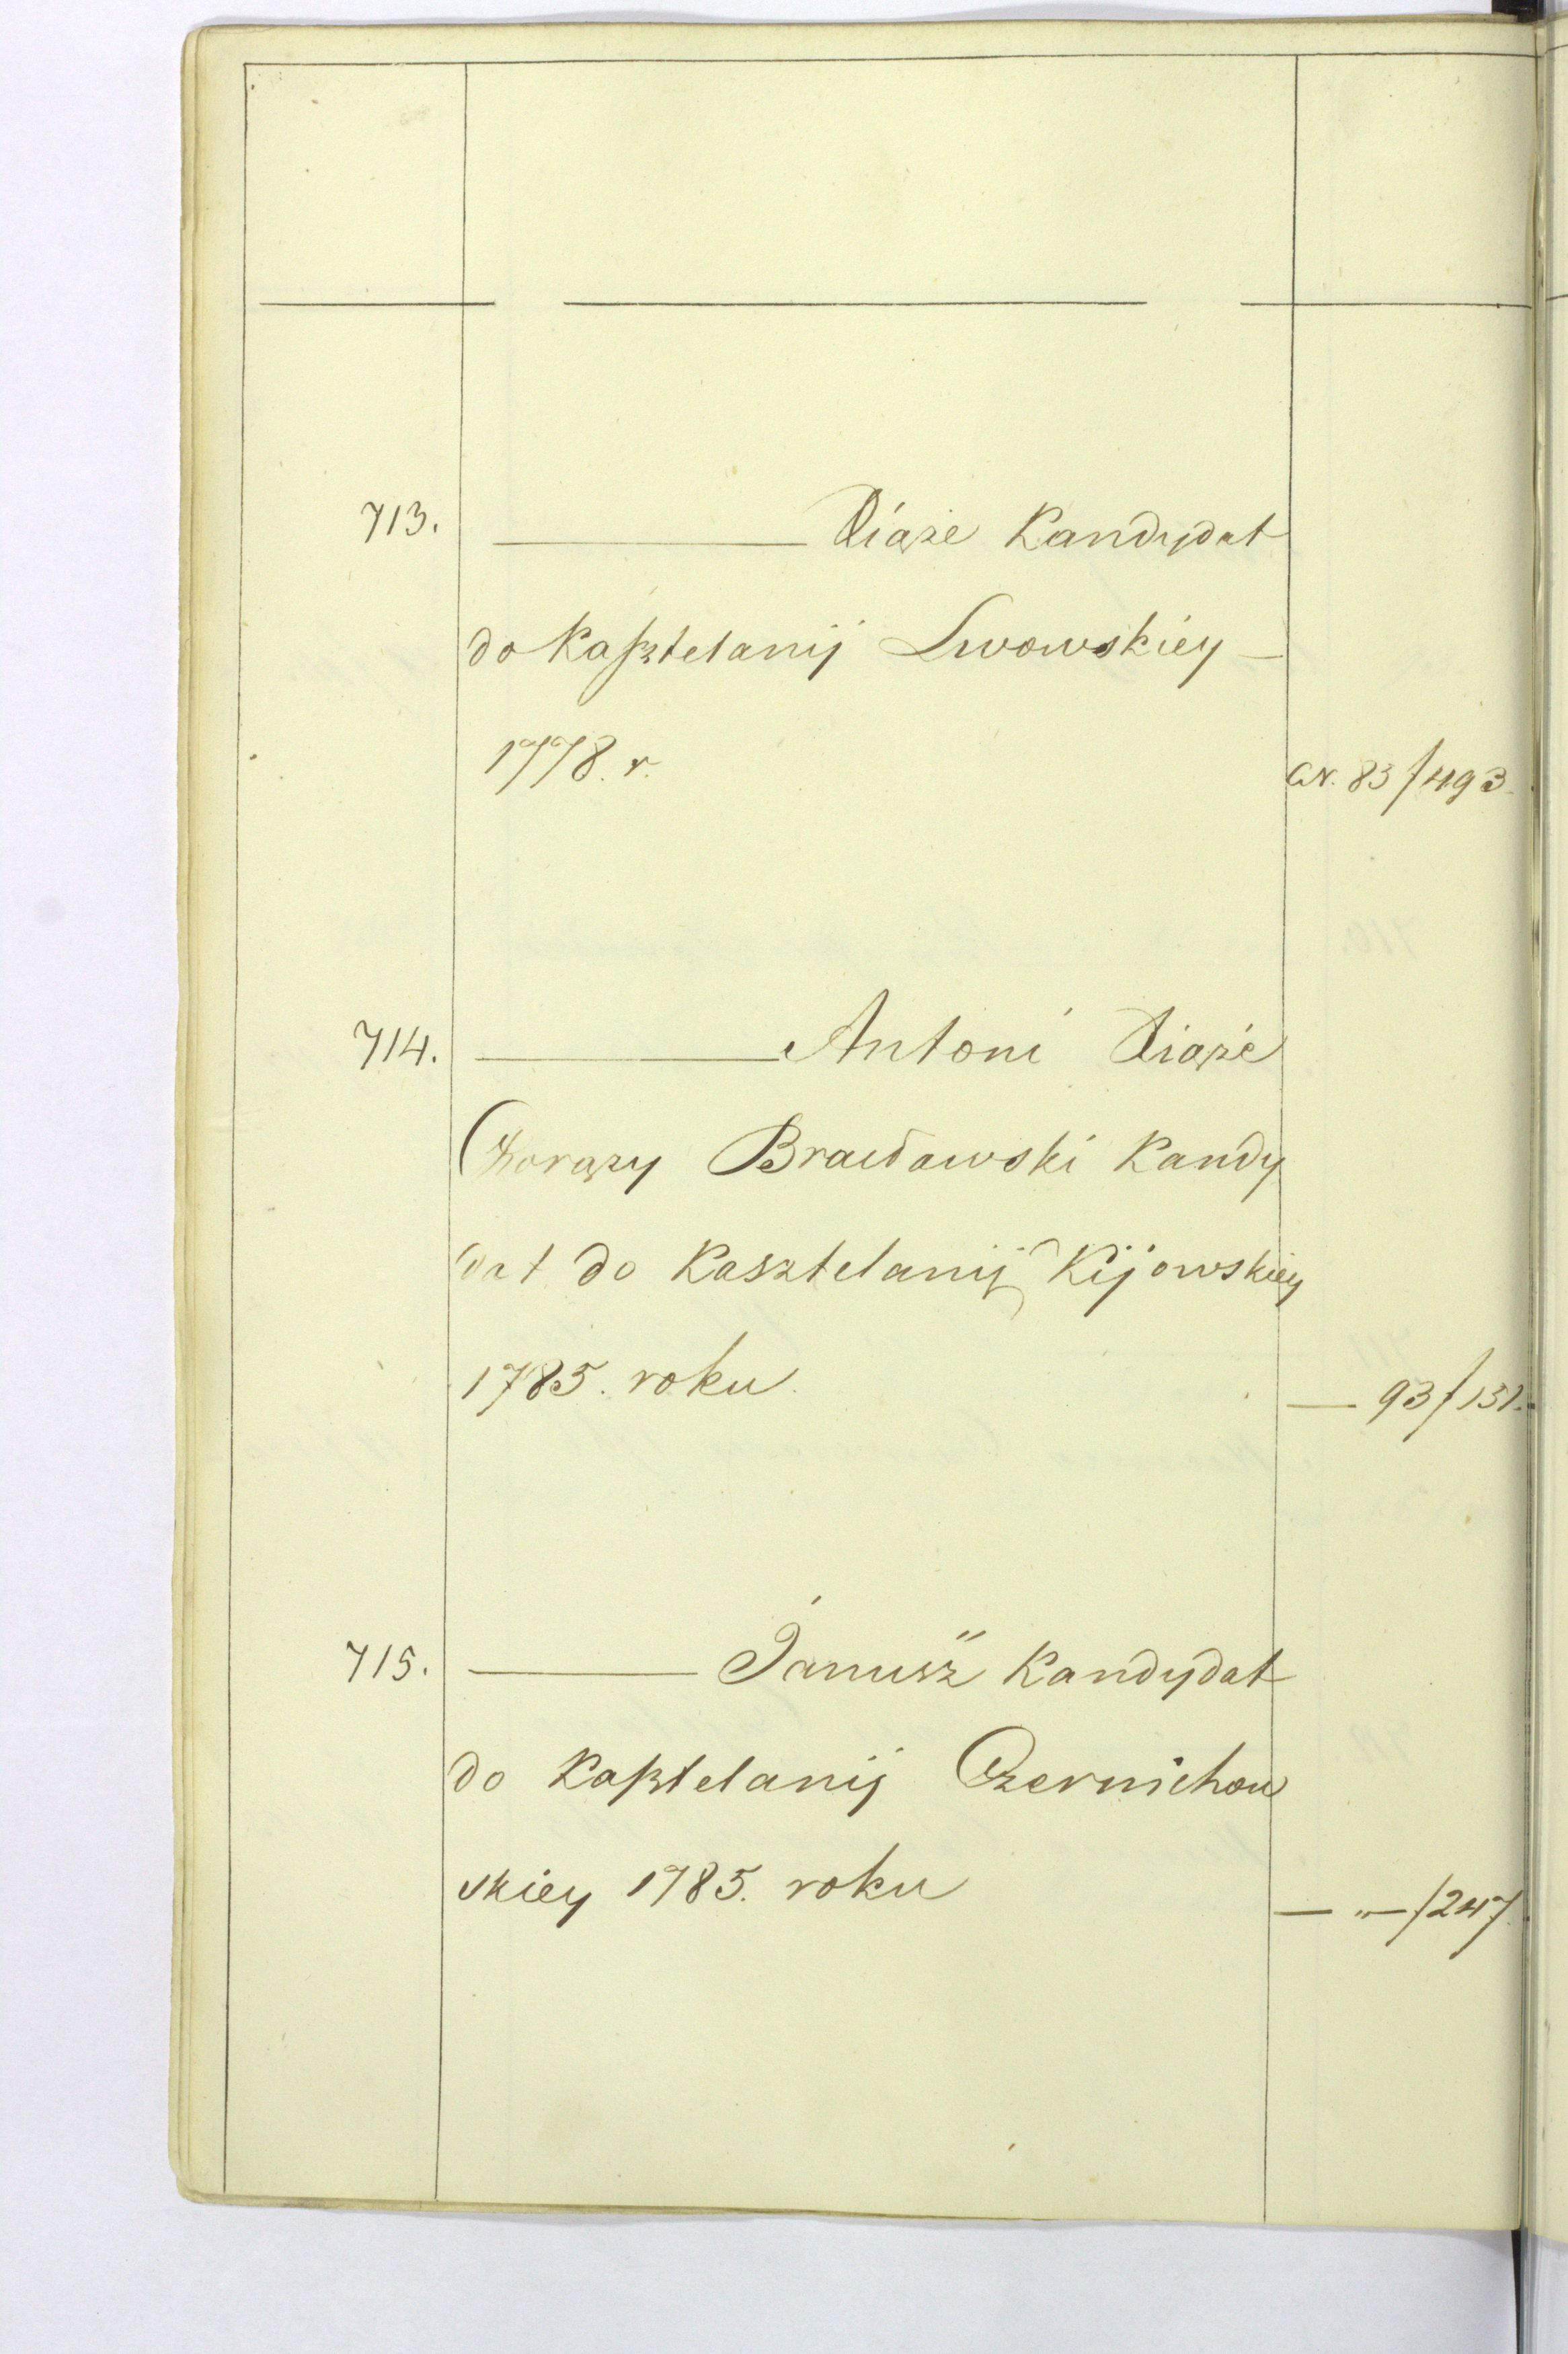 713. ——— Xiąże Kandydat
do Kasztelanij Lwowskiey —
1778. r.
N. 83/493.
714. ——— Antoni Xiąże
Chorąży Bracławski Kandy
dat do Kasztelanij Kijowskiey
1785. roku.
— 93/131.
715. ——— Janusz Kandydat
do Kasztelanij Czernichow
skiey 1785. roku
— „ — /247.